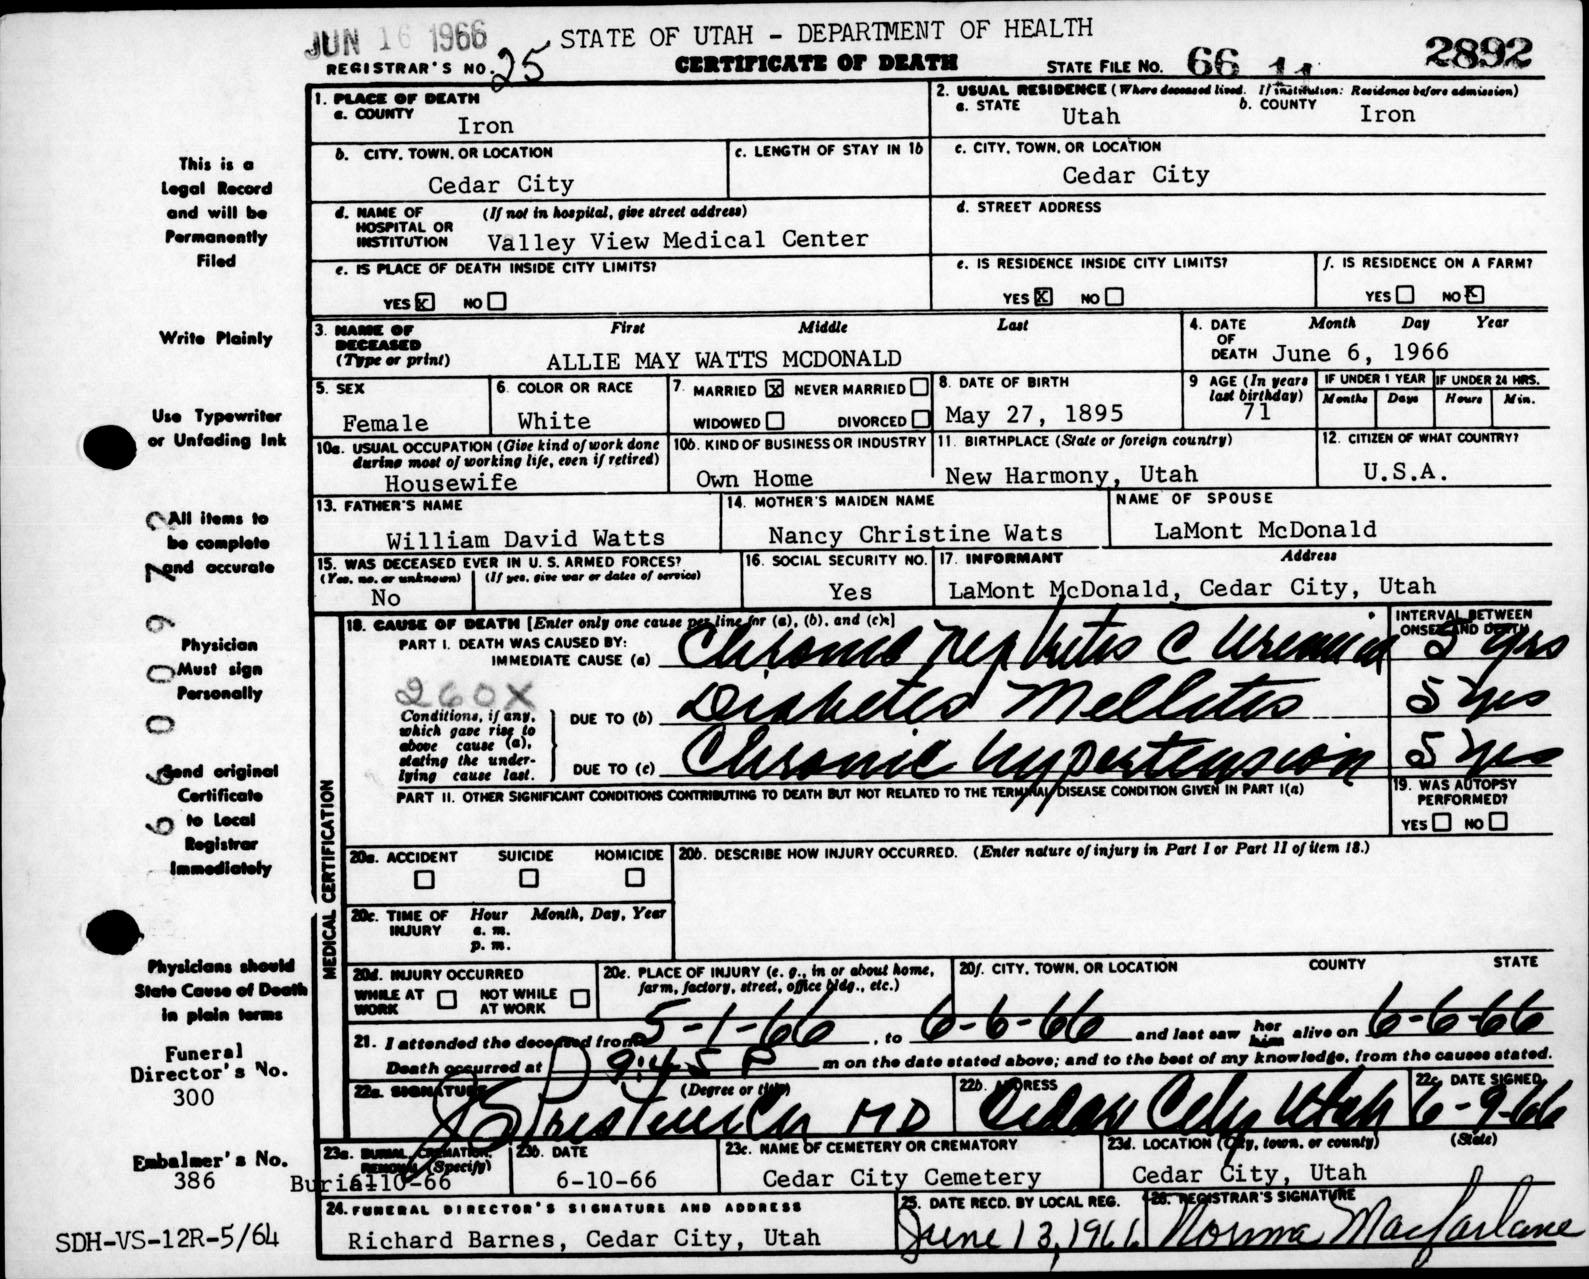 JUN 16 1966
STATE OF UTAH - DEPARTMENT OF HEALTH
REGISTRAR'S NO. 25
CERTIFICATE OF DEATH
STATE FILE NO. 66 11 2892
1. PLACE OF DEATH
a. COUNTY
Iron
2. USUAL RESIDENCE (Where deceased lived. If institution: Residence before admission)
a. STATE Utah b. COUNTY Iron
b. CITY, TOWN, OR LOCATION
Cedar City
c. LENGTH OF STAY IN 1b
c. CITY, TOWN, OR LOCATION
Cedar City
d. NAME OF HOSPITAL OR INSTITUTION (If not in hospital, give street address)
Valley View Medical Center
d. STREET ADDRESS
e. IS PLACE OF DEATH INSIDE CITY LIMITS?
YES X NO
e. IS RESIDENCE INSIDE CITY LIMITS?
YES X NO
f. IS RESIDENCE ON A FARM?
YES NO X
3. NAME OF DECEASED (Type or print) First Middle Last
ALLIE MAY WATTS MCDONALD
4. DATE OF DEATH Month Day Year
June 6, 1966
5. SEX
Female
6. COLOR OR RACE
White
7. MARRIED X NEVER MARRIED
WIDOWED DIVORCED
8. DATE OF BIRTH
May 27, 1895
9 AGE (In years last birthday)
71
IF UNDER 1 YEAR
Months Days
IF UNDER 24 HRS.
Hours Min.
10a. USUAL OCCUPATION (Give kind of work done during most of working life, even if retired)
Housewife
10b. KIND OF BUSINESS OR INDUSTRY
Own Home
11. BIRTHPLACE (State or foreign country)
New Harmony, Utah
12. CITIZEN OF WHAT COUNTRY?
U.S.A.
13. FATHER'S NAME
William David Watts
14. MOTHER'S MAIDEN NAME
Nancy Christine Wats
NAME OF SPOUSE
LaMont McDonald
15. WAS DECEASED EVER IN U. S. ARMED FORCES?
(Yes, no, or unknown) (If yes, give war or dates of service)
No
16. SOCIAL SECURITY NO.
Yes
17. INFORMANT Address
LaMont McDonald, Cedar City, Utah
MEDICAL CERTIFICATION
18. CAUSE OF DEATH [Enter only one cause per line for (a), (b), and (c).]
INTERVAL BETWEEN ONSET AND DEATH
PART I. DEATH WAS CAUSED BY:
IMMEDIATE CAUSE (a) Chronic Nephritis C Uremia 5 yrs
260X
Conditions, if any, which gave rise to above cause (a), stating the underlying cause last.
DUE TO (b) Diabetes Mellitus 5 yrs
DUE TO (c) Chronic hypertension 5 yrs
PART II. OTHER SIGNIFICANT CONDITIONS CONTRIBUTING TO DEATH BUT NOT RELATED TO THE TERMINAL DISEASE CONDITION GIVEN IN PART I(a)
19. WAS AUTOPSY PERFORMED?
YES NO
20a. ACCIDENT SUICIDE HOMICIDE
20b. DESCRIBE HOW INJURY OCCURRED. (Enter nature of injury in Part I or Part II of item 18.)
20c. TIME OF INJURY Hour Month, Day, Year
a. m.
p. m.
20d. INJURY OCCURRED
WHILE AT WORK NOT WHILE AT WORK
20e. PLACE OF INJURY (e. g., in or about home, farm, factory, street, office bldg., etc.)
20f. CITY, TOWN, OR LOCATION COUNTY STATE
21. I attended the deceased from 5-1-66, to 6-6-66 and last saw her him alive on 6-6-66
Death occurred at 9:45 P m on the date stated above; and to the best of my knowledge, from the causes stated.
22a. SIGNATURE (Degree or title)
MD
22b. ADDRESS
Cedar City Utah
22c. DATE SIGNED
6-9-66
23a. BURIAL, CREMATION, REMOVAL (Specify)
Burial 6-10-66
23b. DATE
6-10-66
23c. NAME OF CEMETERY OR CREMATORY
Cedar City Cemetery
23d. LOCATION (City, town, or county) (State)
Cedar City, Utah
24. FUNERAL DIRECTOR'S SIGNATURE AND ADDRESS
Richard Barnes, Cedar City, Utah
25. DATE RECD. BY LOCAL REG.
June 13, 1966
26. REGISTRAR'S SIGNATURE
Norma Macfarlane
This is a
Legal Record
and will be
Permanently
Filed
Write Plainly
Use Typewriter
or Unfading Ink
All items to
be complete
and accurate
Physician
Must sign
Personally
Send original
Certificate
to Local
Registrar
Immediately
Physicians should
State Cause of Death
in plain terms
Funeral
Director's No.
300
Embalmer's No.
386
SDH-VS-12R-5/64